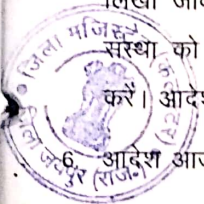 संस्था को
करें। आदेश
6. आदेश आज
जिला मजिस्ट्रेट
जिला जयपुर (राज.)